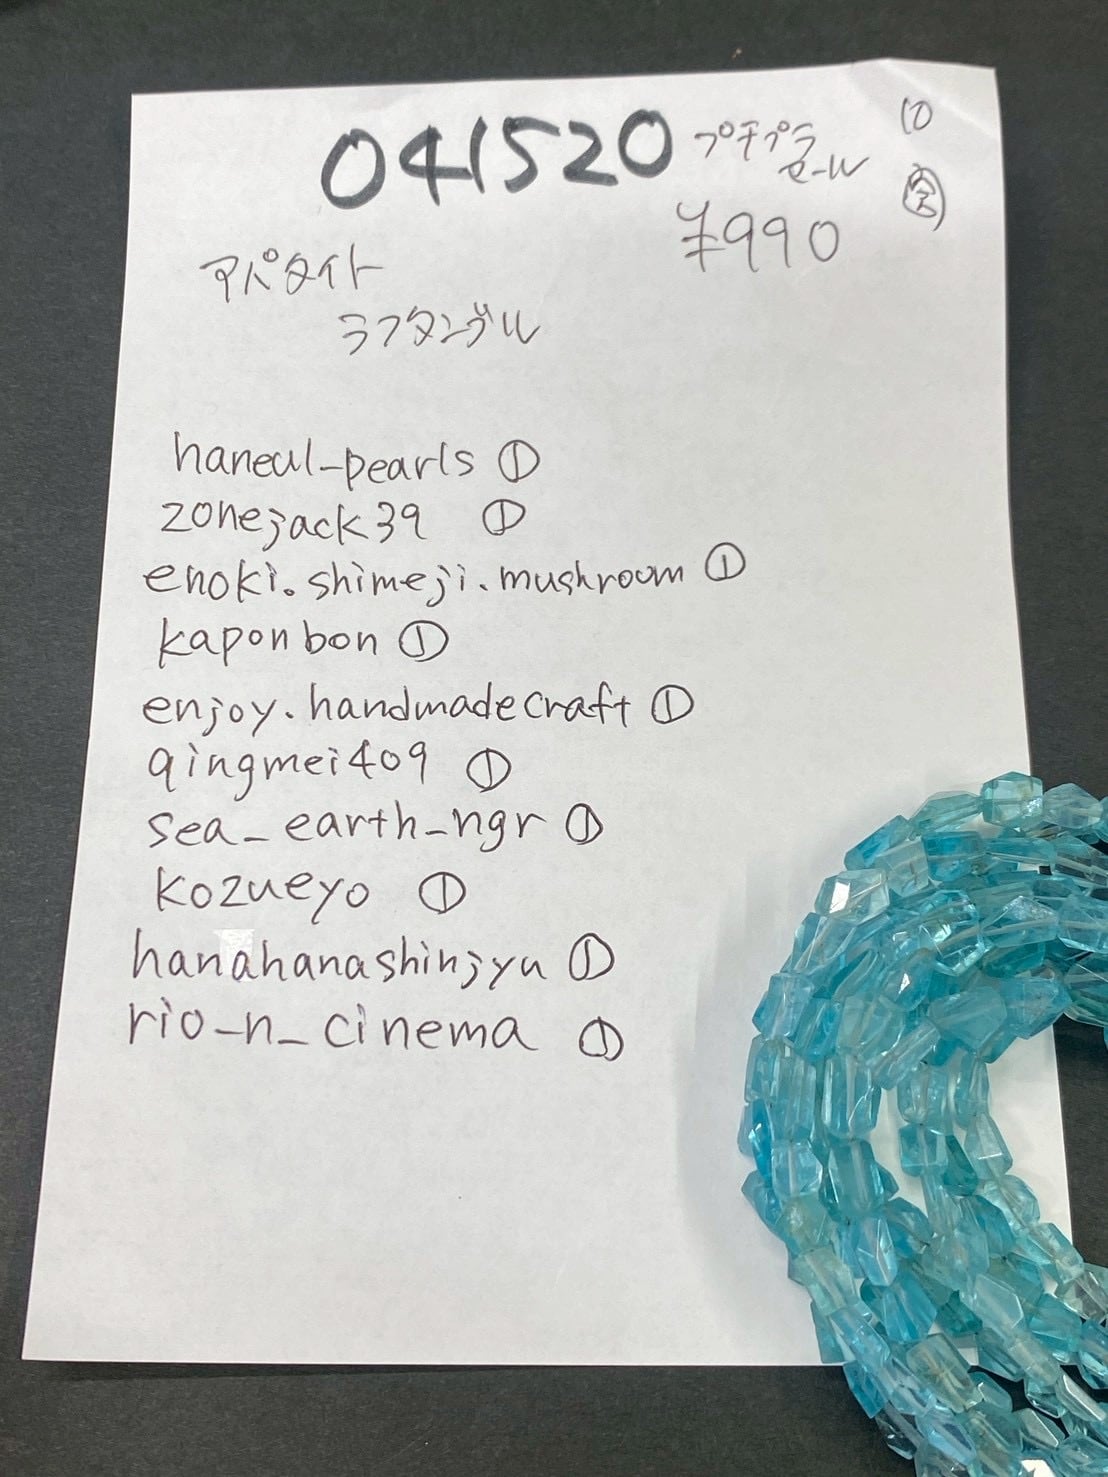 041520 プチプラ 10
セール
¥990
アパタイト
ラフタンブル
haneul-pearls ①
zonejack39 ①
enoki.shimeji.mushroom ①
kaponbon ①
enjoy.handmadecraft ①
qingmei409 ①
sea_earth_ngr ①
kozueyo ①
hanahanashinjyu ①
rio_n_cinema ①